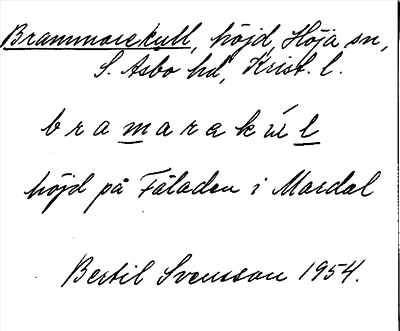 Brammarekull, höjd, Höja sn,
S. Åsbo hd, Krist. l.
bramarekúl
höjd på Fäladen i Mardal
Bertil Svensson 1954.